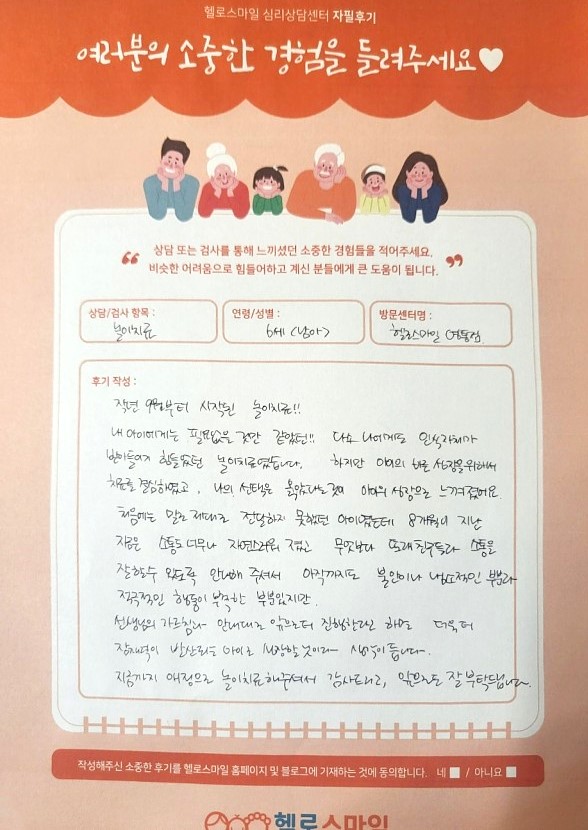 헬로스마일 심리상담센터 자필후기
여러분의 소중한 경험을 들려주세요♥
“ 상담 또는 검사를 통해 느끼셨던 소중한 경험들을 적어주세요.
비슷한 어려움으로 힘들어하고 계신 분들에게 큰 도움이 됩니다. ”
상담/검사 항목 :
놀이치료
연령/성별 :
6세 <남아>
방문센터명 :
헬로스마일 영통점
후기 작성 :
작년 9월부터 시작된 놀이치료!!
내 아이에게는 필요없을 것만 같았던!! 다소 나에게도 인식자체가
받아들이기 힘들었던 놀이치료였습니다. 하지만 아이의 바른 성장을위해서
치료를 결심하였고, 나의 선택은 옳았다는것이 아이의 성장으로 느껴졌어요.
처음에는 말로 제대로 전달하지 못했던 아이였는데 8개월이 지난
지금은 소통도 너무나 자연스러워 졌고 무엇보다 또래친구들과 소통을
잘할수 있도록 안내해 주셔서 아직까지도 불안이나 내소적인 부분과
적극적인 행동이 부족한 부분있지만.
선생님의 가르침과 안내대로 앞으로더 진행한다면 하면 더욱더
잠재력이 발산되는 아이로 성장할것이라 생각이듭니다.
지금까지 애정으로 놀이치료해주셔서 감사드리고, 앞으로도 잘 부탁드립니다.
작성해주신 소중한 후기를 헬로스마일 홈페이지 및 블로그에 기재하는 것에 동의합니다. 네 / 아니요
헬로스마일